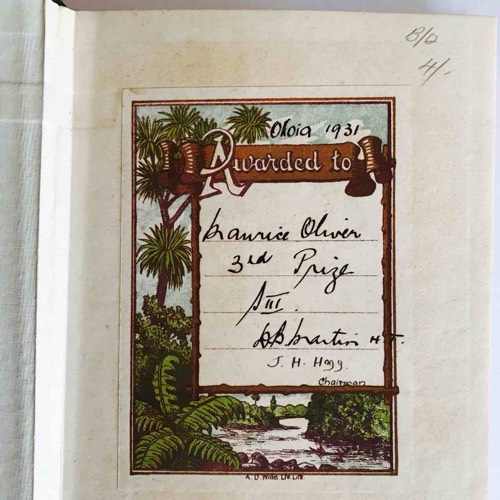 8/0
4/-
Oloia 1931
Awarded to
Maurice Oliver
3rd Prize
S III.
Martin H.T.
J. H. Hogg.
Chairman
A. D. Willis, Ltd. Lith.